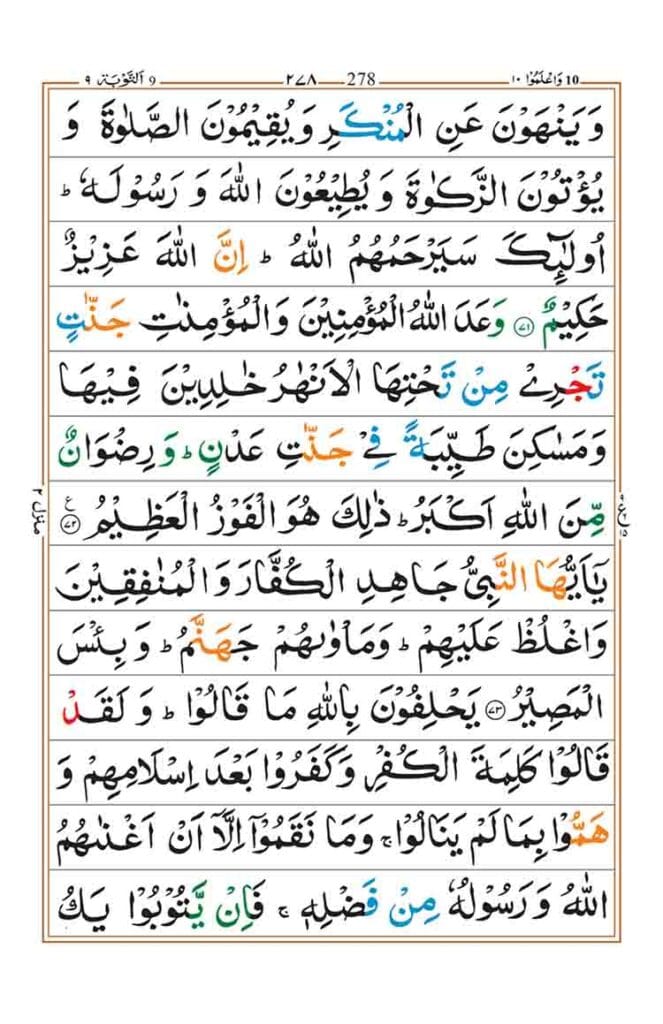 10 وَاعْلَمُوْۤا ١٠ 278 ٢٧٨ 9 اَلتَّوْبَة ٩
وَ يَنْهَوْنَ عَنِ الْمُنْكَرِ وَ يُقِيْمُوْنَ الصَّلٰوةَ وَ
يُؤْتُوْنَ الزَّكٰوةَ وَ يُطِيْعُوْنَ اللّٰهَ وَ رَسُوْلَهٗ ؕ
اُولٰٓئِكَ سَيَرْحَمُهُمُ اللّٰهُ ؕ اِنَّ اللّٰهَ عَزِيْزٌ
حَكِيْمٌ ﴿٧١﴾ وَعَدَ اللّٰهُ الْمُؤْمِنِيْنَ وَالْمُؤْمِنٰتِ جَنّٰتٍ
تَجْرِيْ مِنْ تَحْتِهَا الْاَنْهٰرُ خٰلِدِيْنَ فِيْهَا
وَ مَسٰكِنَ طَيِّبَةً فِيْ جَنّٰتِ عَدْنٍ ؕ وَ رِضْوَانٌ
مِّنَ اللّٰهِ اَكْبَرُ ؕ ذٰلِكَ هُوَ الْفَوْزُ الْعَظِيْمُ ﴿٧٢﴾ ع
منزل ٢
يٰۤاَيُّهَا النَّبِيُّ جَاهِدِ الْكُفَّارَ وَ الْمُنٰفِقِيْنَ
وَاغْلُظْ عَلَيْهِمْ ؕ وَمَاْوٰىهُمْ جَهَنَّمُ ؕ وَ بِئْسَ
الْمَصِيْرُ ﴿٧٣﴾ يَحْلِفُوْنَ بِاللّٰهِ مَا قَالُوْا ؕ وَ لَقَدْ
قَالُوْا كَلِمَةَ الْكُفْرِ وَ كَفَرُوْا بَعْدَ اِسْلَامِهِمْ وَ
هَمُّوْا بِمَا لَمْ يَنَالُوْا ۚ وَمَا نَقَمُوْۤا اِلَّاۤ اَنْ اَغْنٰىهُمُ
اللّٰهُ وَ رَسُوْلُهٗ مِنْ فَضْلِهٖ ۚ فَاِنْ يَّتُوْبُوْا يَكُ